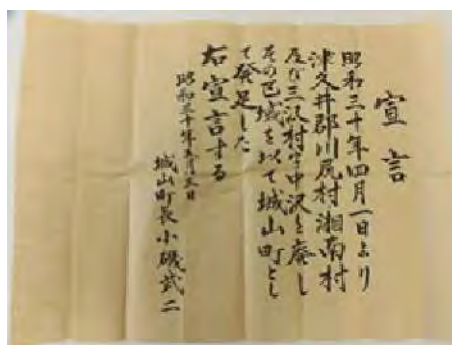 宣言
昭和三十年四月一日より
津久井郡川尻村湘南村
及び三沢村字中沢を廃し
その区域を以て城山町とし
て発足した
右宣言する
昭和三十年 月 日
城山町長小磯武二